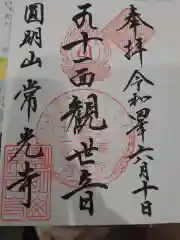 奉拝 令和四年六月十日
十一面観世音
圓明山 常光寺